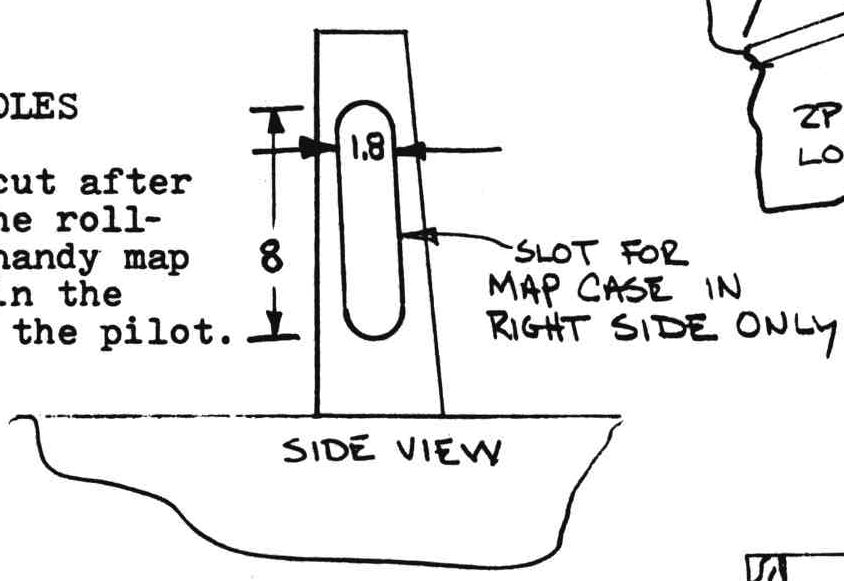 OLES
cut after
he roll-
handy map
in the
the pilot.
1.8
8
SLOT FOR
MAP CASE IN
RIGHT SIDE ONLY
SIDE VIEW
2P
LO